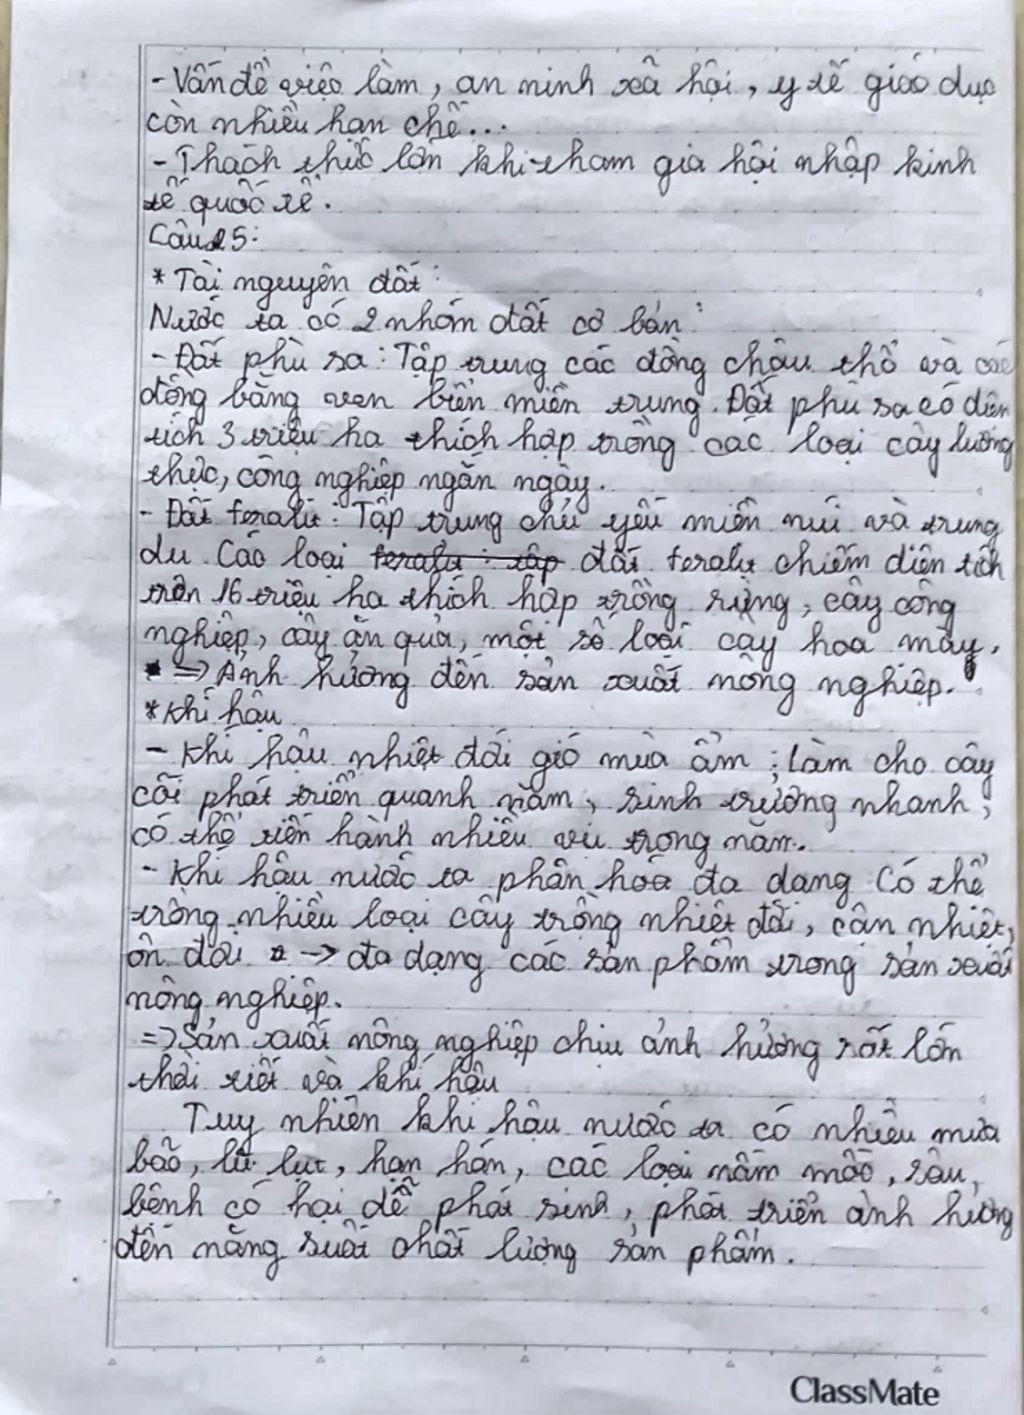 - Vấn đề việc làm, an ninh xã hội, y tế giáo dục
còn nhiều hạn chế...
- Thách thức lớn khi tham gia hội nhập kinh
tế quốc tế.
Câu 25:
* Tài nguyên đất:
Nước ta có 2 nhóm đất cơ bản:
- Đất phù sa: Tập trung các đồng châu thổ và các
đồng bằng ven biển miền trung. Đất phù sa có diện
tích 3 triệu ha thích hợp trồng các loại cây lương
thực, công nghiệp ngắn ngày.
- Đất feralit: Tập trung chủ yếu miền núi và trung
du. Các loại feralit: tập đất feralit chiếm diện tích
trên 16 triệu ha thích hợp trồng rừng, cây công
nghiệp, cây ăn quả, một số loại cây hoa màu.
=> Ảnh hưởng đến sản xuất nông nghiệp.
* Khí hậu
- Khí hậu nhiệt đới gió mùa ẩm: Làm cho cây
cối phát triển quanh năm, sinh trưởng nhanh,
có thể tiến hành nhiều vụ trong năm.
- Khí hậu nước ta phân hoá đa dạng Có thể
trồng nhiều loại cây trồng nhiệt đới, cận nhiệt,
ôn đới -> đa dạng các sản phẩm trong sản xuất
nông nghiệp.
=> Sản xuất nông nghiệp chịu ảnh hưởng rất lớn
thời tiết và khí hậu
Tuy nhiên khí hậu nước ta có nhiều mưa
bão, lũ lụt, hạn hán, các loại nấm mốc, sâu,
bệnh có hại dễ phát sinh, phát triển ảnh hưởng
đến năng suất chất lượng sản phẩm.
ClassMate